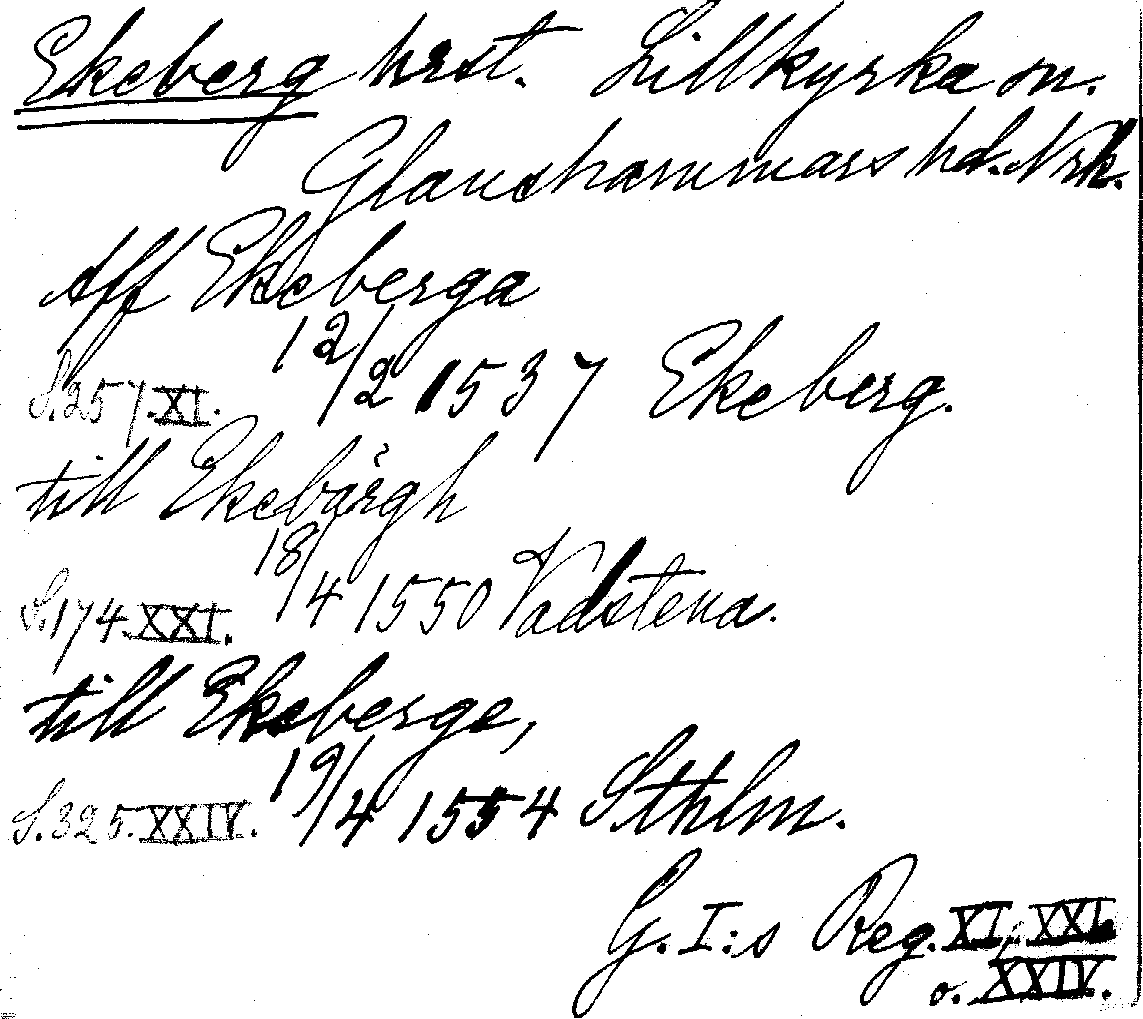 Ekeberg hrst. Lillkyrka sn.
Glanshammars hd. Nrk.
Aff Ekeberga
12/2 1537 Ekeberg.
S. 257. XI.
till Ekebärgh
18/4 1550 Vadstena.
S. 174. XXI.
till Ekeberge,
19/4 1554 Sthlm.
S. 325. XXIV.
G. I:s Reg. XI, XXI
o. XXIV.